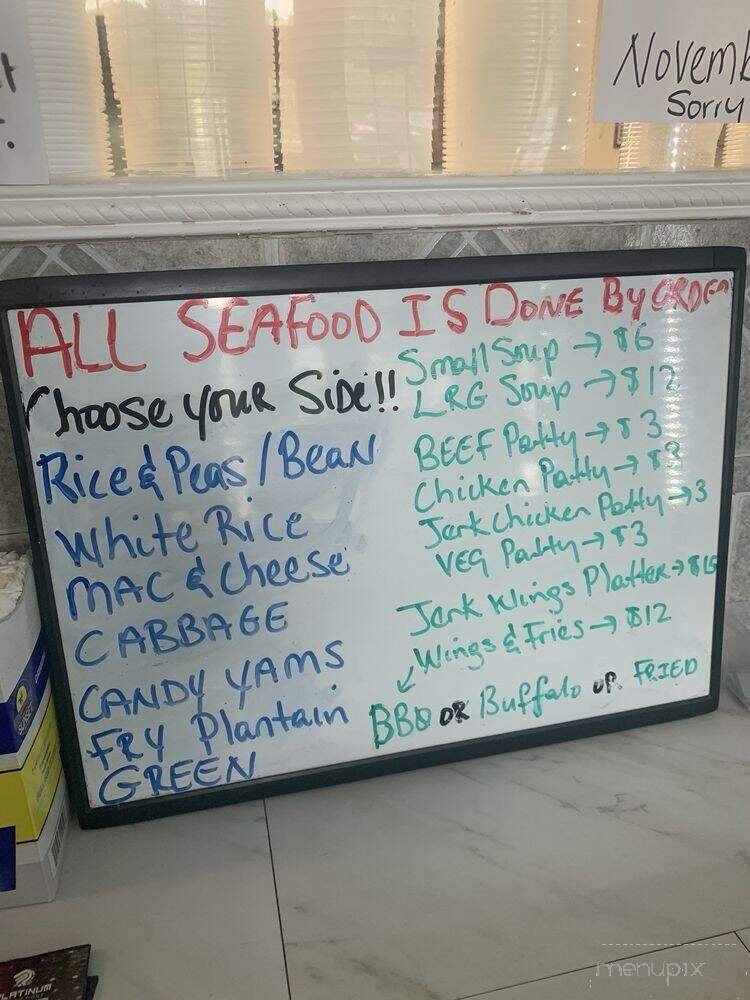 Novemb
Sorry
ALL SEAFOOD IS DONE By ORDER
Choose your Side!!
Rice & Peas / Bean
White Rice
MAC & Cheese
CABBAGE
CANDY YAMS
FRY Plantain
GREEN
Small Soup → $6
LRG Soup → $12
BEEF Patty → $3
Chicken Patty → $3
Jerk Chicken Patty → 3
VEG Patty → $3
Jerk Wings Platter →
Wings & Fries → $12
BBQ OR Buffalo OR FRIED
PLATINUM
menupix